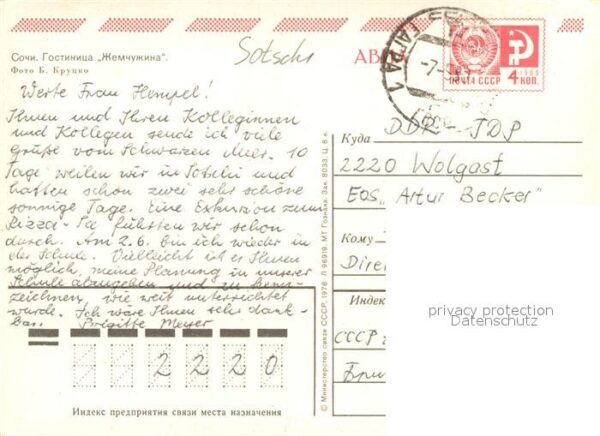 Сочи. Гостиница „Жемчужина".
Фото Б. Круцко
Sotschi
АВИ
ГАГРА 1
1966
ПОЧТА СССР 4 КОП.
Werte Frau Hempel!
Ihnen und Ihren Kolleginnen
und Kollegen sende ich viele
Grüße vom Schwarzen Meer. 10
Tage weilen wir in Sotschi und
hatten schon zwei sehr schöne
sonnige Tage. Eine Exkursion zum
Rizza-See führten wir schon
durch. Am 2.6. bin ich wieder in
der Schule. Vielleicht ist es Ihnen
möglich, meine Planung in unserer
Schule abzugeben und zu kenn-
zeichnen, wie weit unterrichtet
wurde. Ich wäre Ihnen sehr dank-
bar. Brigitte Meyer
2220
Индекс предприятия связи места назначения
© Министерство связи СССР, 1976. Л 96919. МТ Гознака. Зак. 8033. Ц. 6 к.
Куда DDR - ГДР
2220 Wolgast
EOS „Artur Becker"
Кому
Dire
Индекс
СССР
Бри
privacy protection
Datenschutz